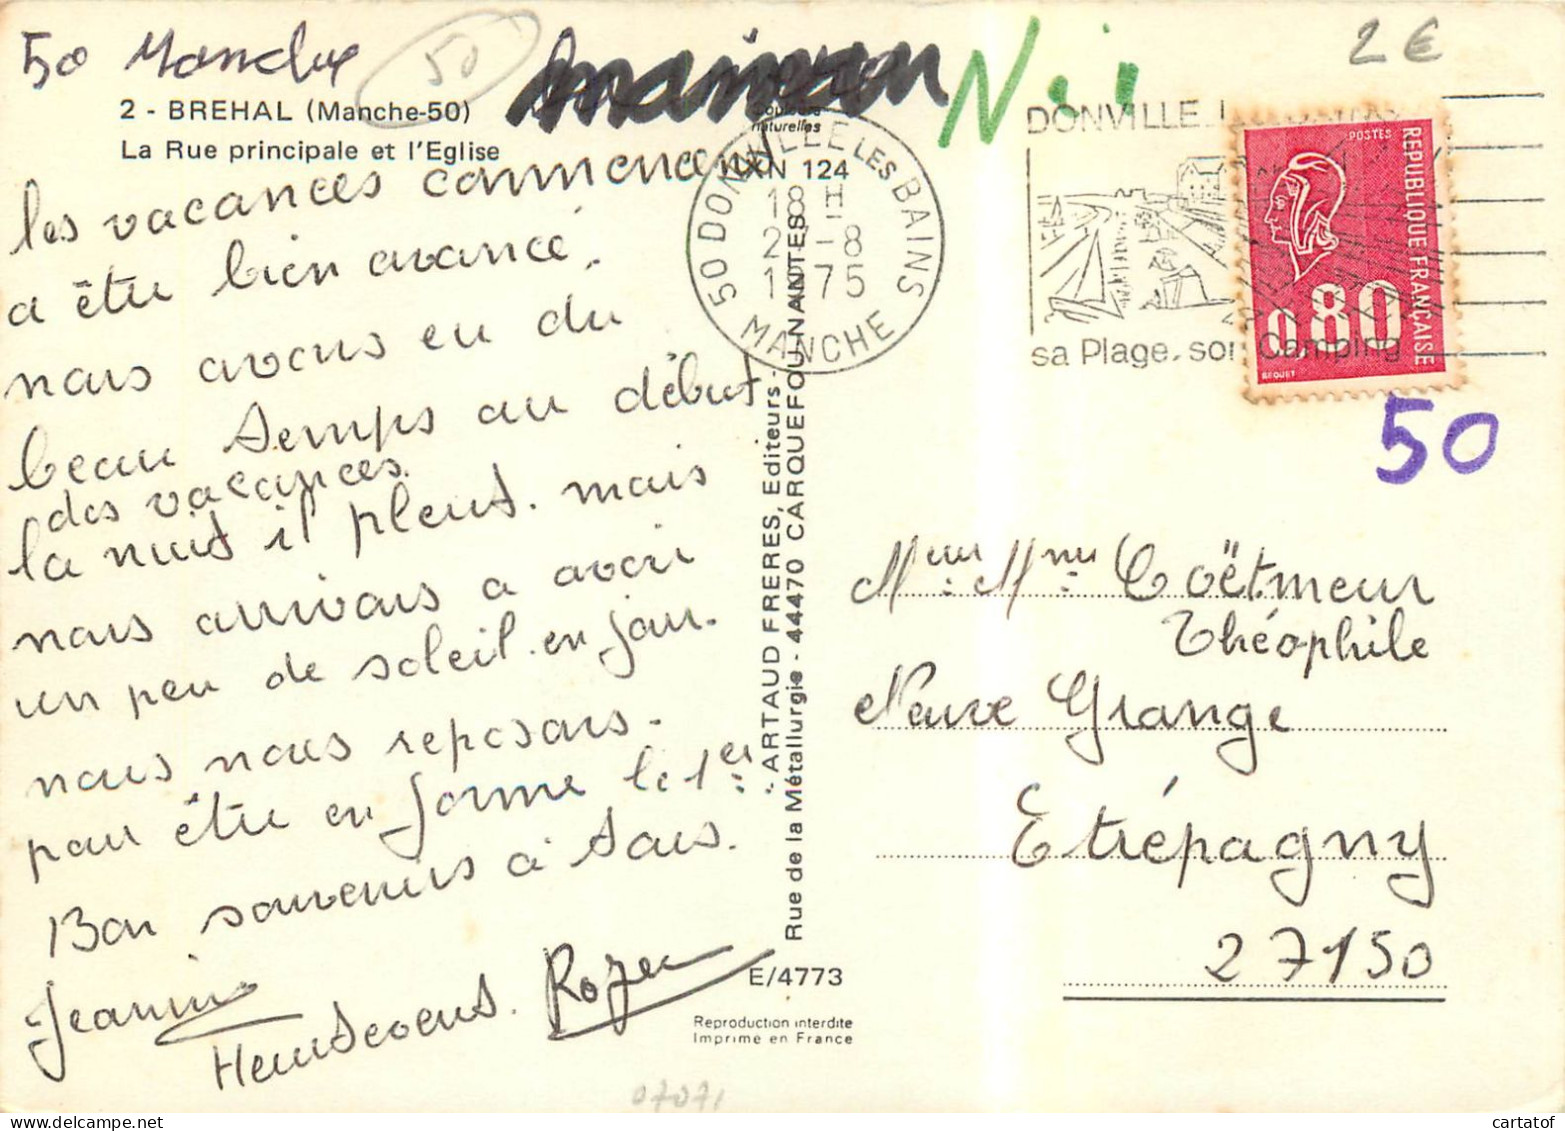 50 Manche
50
2 - BREHAL (Manche-50)
La Rue principale et l'Eglise
Couleurs
naturelles
124
les vacances commencent
a être bien avancé.
nous avons eu du
beau temps au début
des vacances.
la nuit il pleut. mais
nous arrivons a avoir
un peu de soleil. en jour.
nous nous reposons.
pour être en forme le 1er
Bon souvenirs à tous.
Jeannine
Roger
ARTAUD FRERES, Editeurs -
Rue de la Métallurgie - 44470 CARQUEFOU-NANTES
E/4773
Reproduction interdite
Imprimé en France
07071
50 DONVILLE LES BAINS
18 H
2 -8
1975
MANCHE
DONVILLE
sa Plage. son Camping
2€
POSTES
REPUBLIQUE FRANÇAISE
0,80
BEQUET
50
Mr et Mme Coëtmeur
Théophile
Neuve Grange
Etrépagny
27150
cartatof